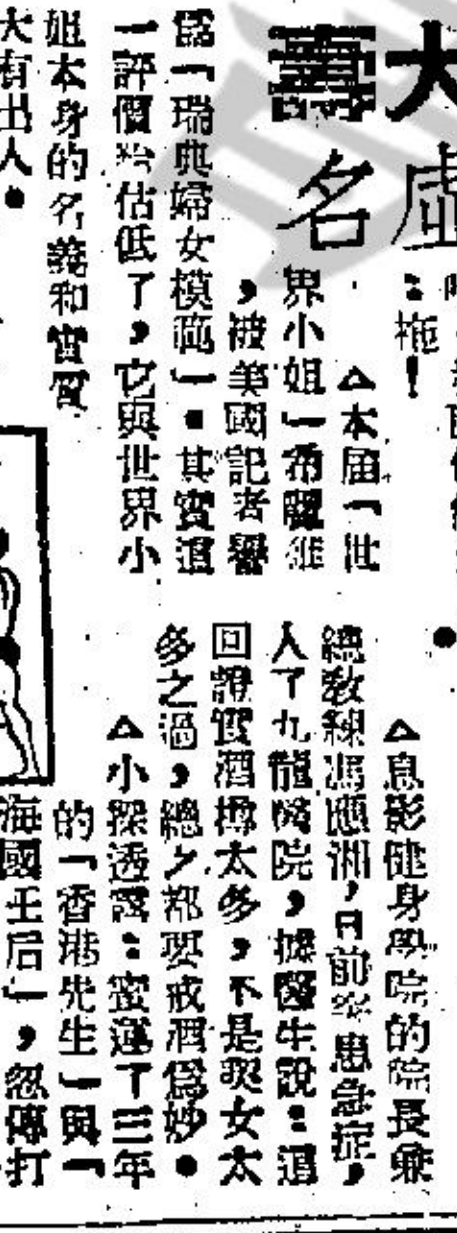 大虛
壽名
：拖！
△本屆「世
界小姐」希麗維
，被美國記者譽
爲「瑞典婦女模範」。其實這
一評價給估低了，它與世界小
姐本身的名義和實質
大有出入。
△息影健身學院的院長兼
總教練馮應湘，日前突患急症，
入了九龍醫院，據醫生說：這
回證實酒樽太多，不是與女太
多之過，總之都要戒酒爲妙。
△小探透露：蜜運了三年
的「香港先生」與「
海國王后」，忽傳打